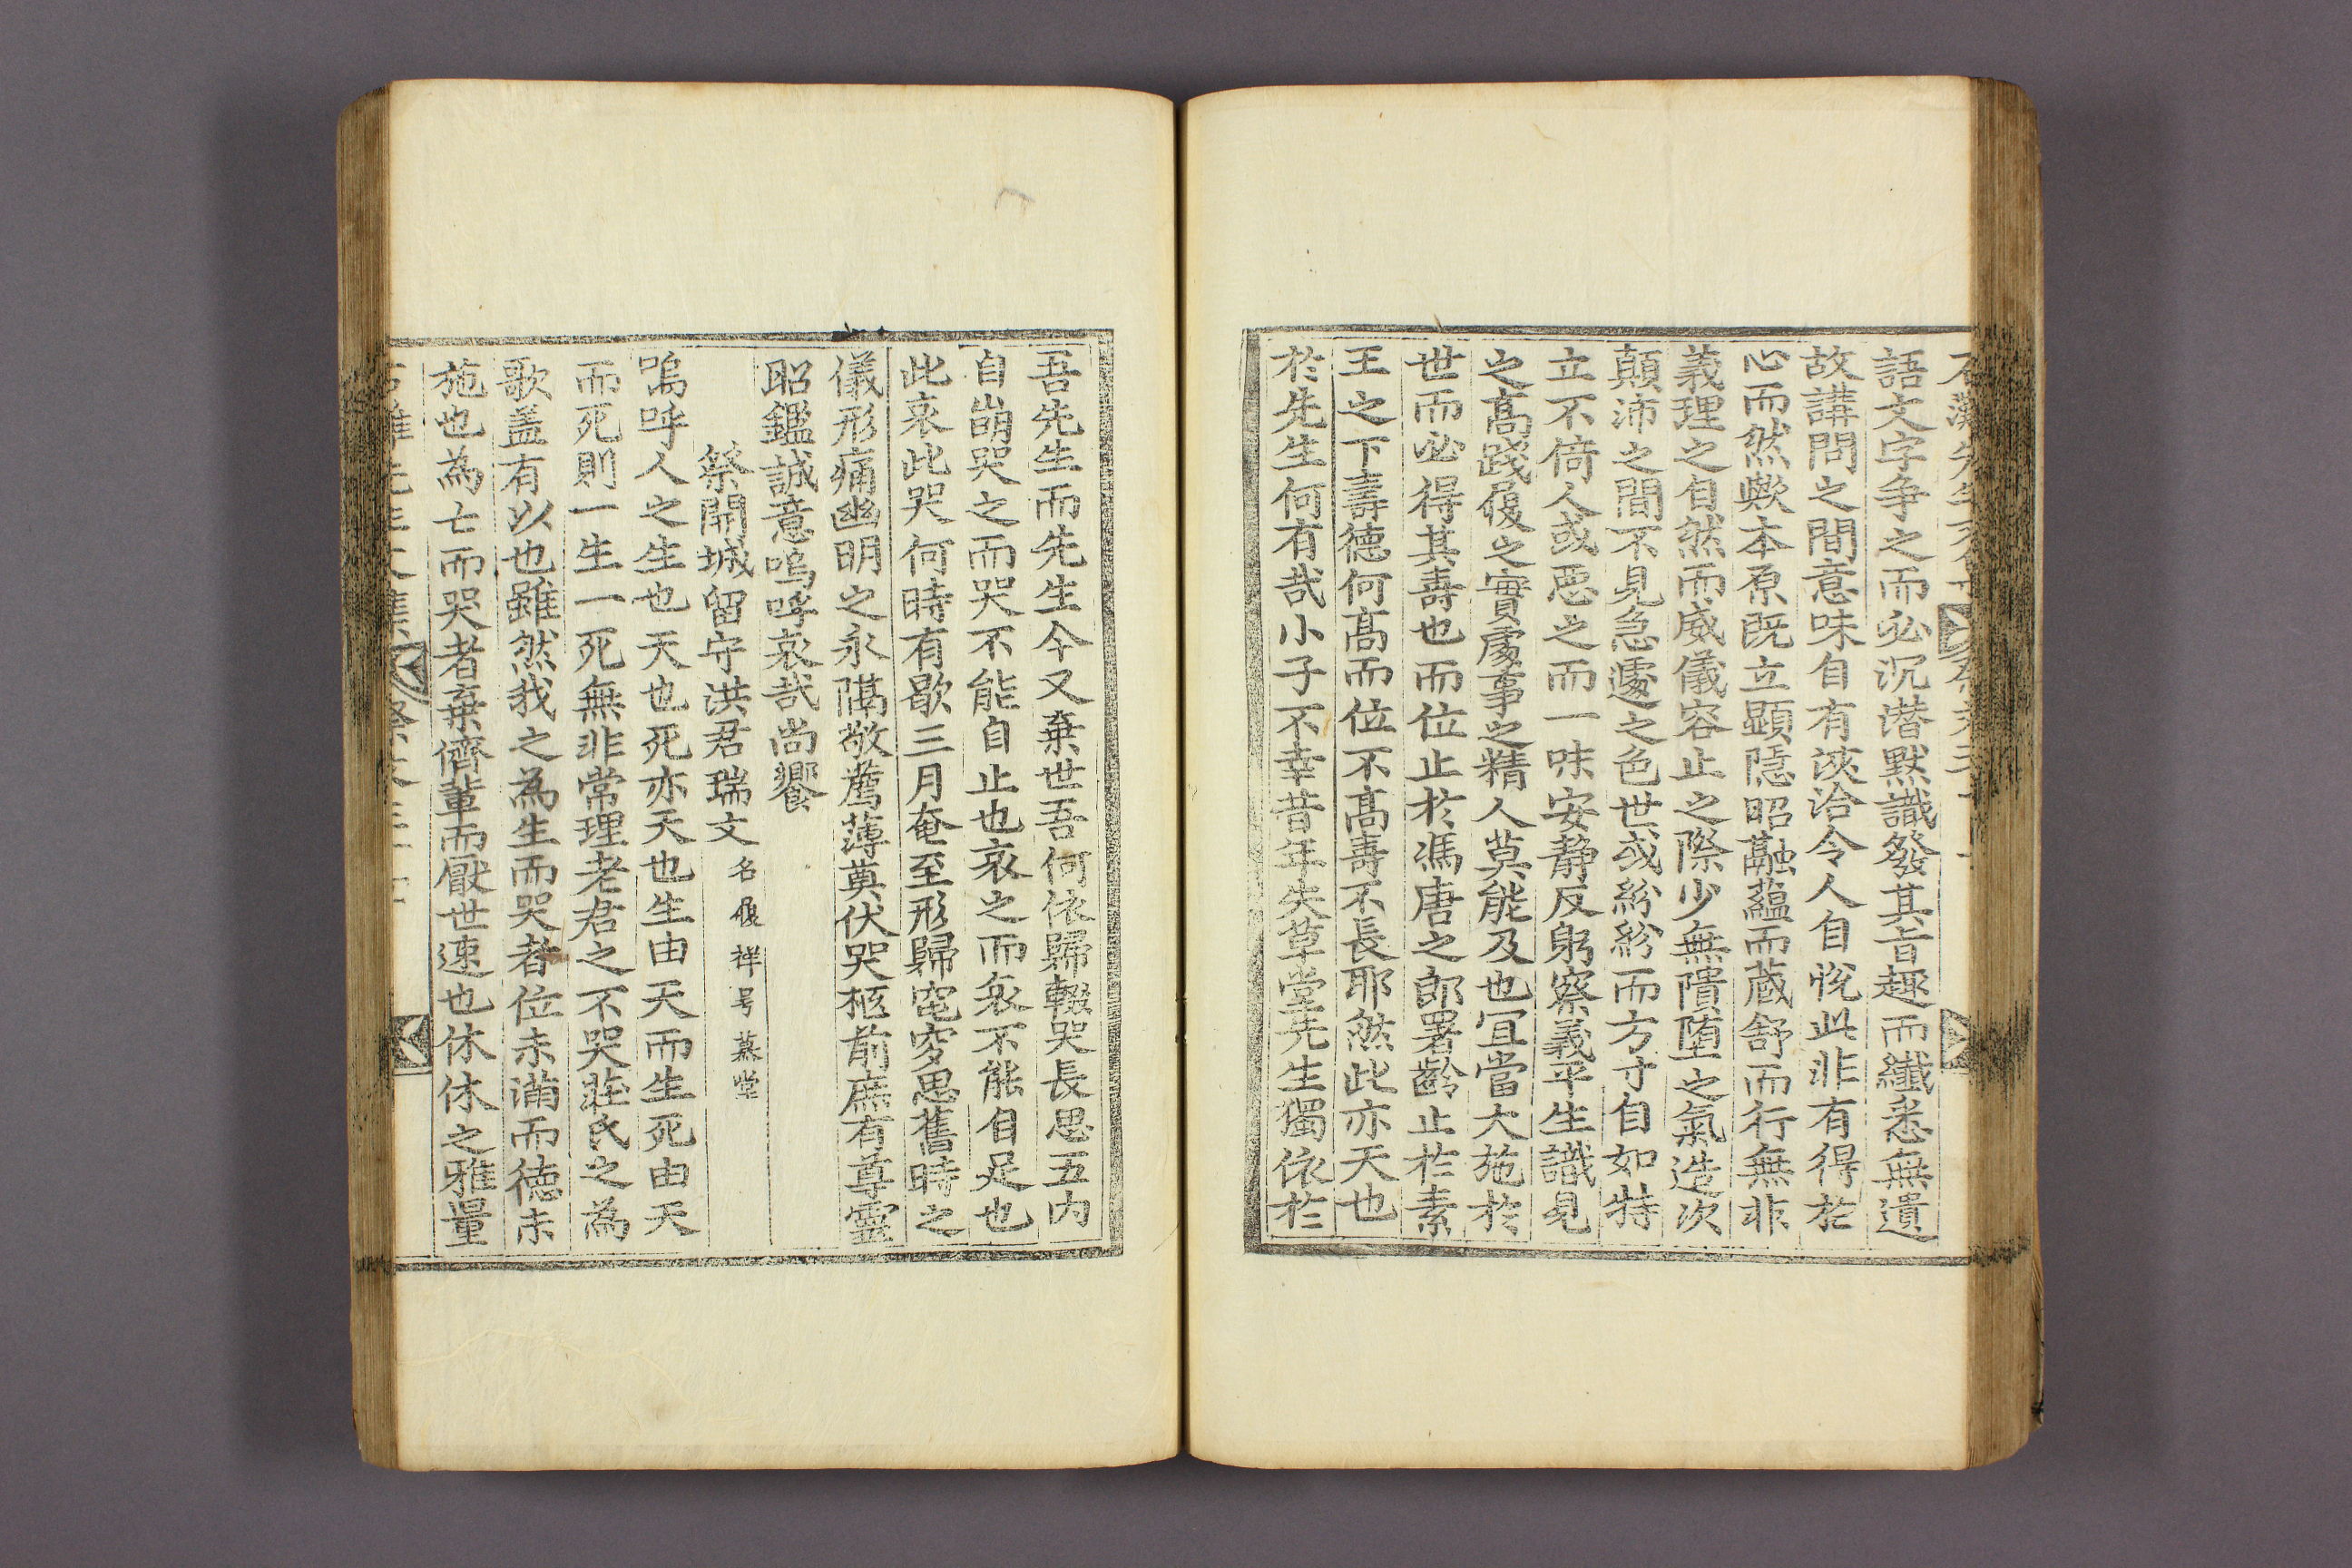 語文字争之而必沉潜黙識發其旨趣而纖悉無遺
故講問之間意味自有浹洽令人自悅此非有得於
心而然歟本原既立顯隱昭融蘊而蔵舒而行無非
義理之自然而威儀容止之際少無隤堕之氣造次
顛沛之間不見急遽之色世或紛紛而方寸自如特
立不倚人或惡之而一味安静反躬察義平生識見
之髙踐履之實處事之精人莫能及也冝當大施於
世而必得其壽也而位止於馮唐之郎署齡止於素
王之下壽德何髙而位不髙壽不長耶然此亦天也
於先生何有哉小子不幸昔年失草堂先生獨依於
吾先生而先生今又棄世吾何依歸輟哭長思五内
自崩哭之而哭不能自止也哀之而哀不能自足也
此哀此哭何時有歇三月奄至形歸窀穸思舊時之
儀形痛幽明之永隔敬薦薄奠伏哭柩前庶有尊靈
昭鑑誠意嗚呼哀哉尚饗
祭開城留守洪君瑞文 名履祥号慕堂
嗚呼人之生也天也死亦天也生由天而生死由天
而死則一生一死無非常理老君之不哭莊氏之為
歌盖有以也雖然我之為生而哭者位未滿而德未
施也為亡而哭者棄儕輩而厭世速也休休之雅量